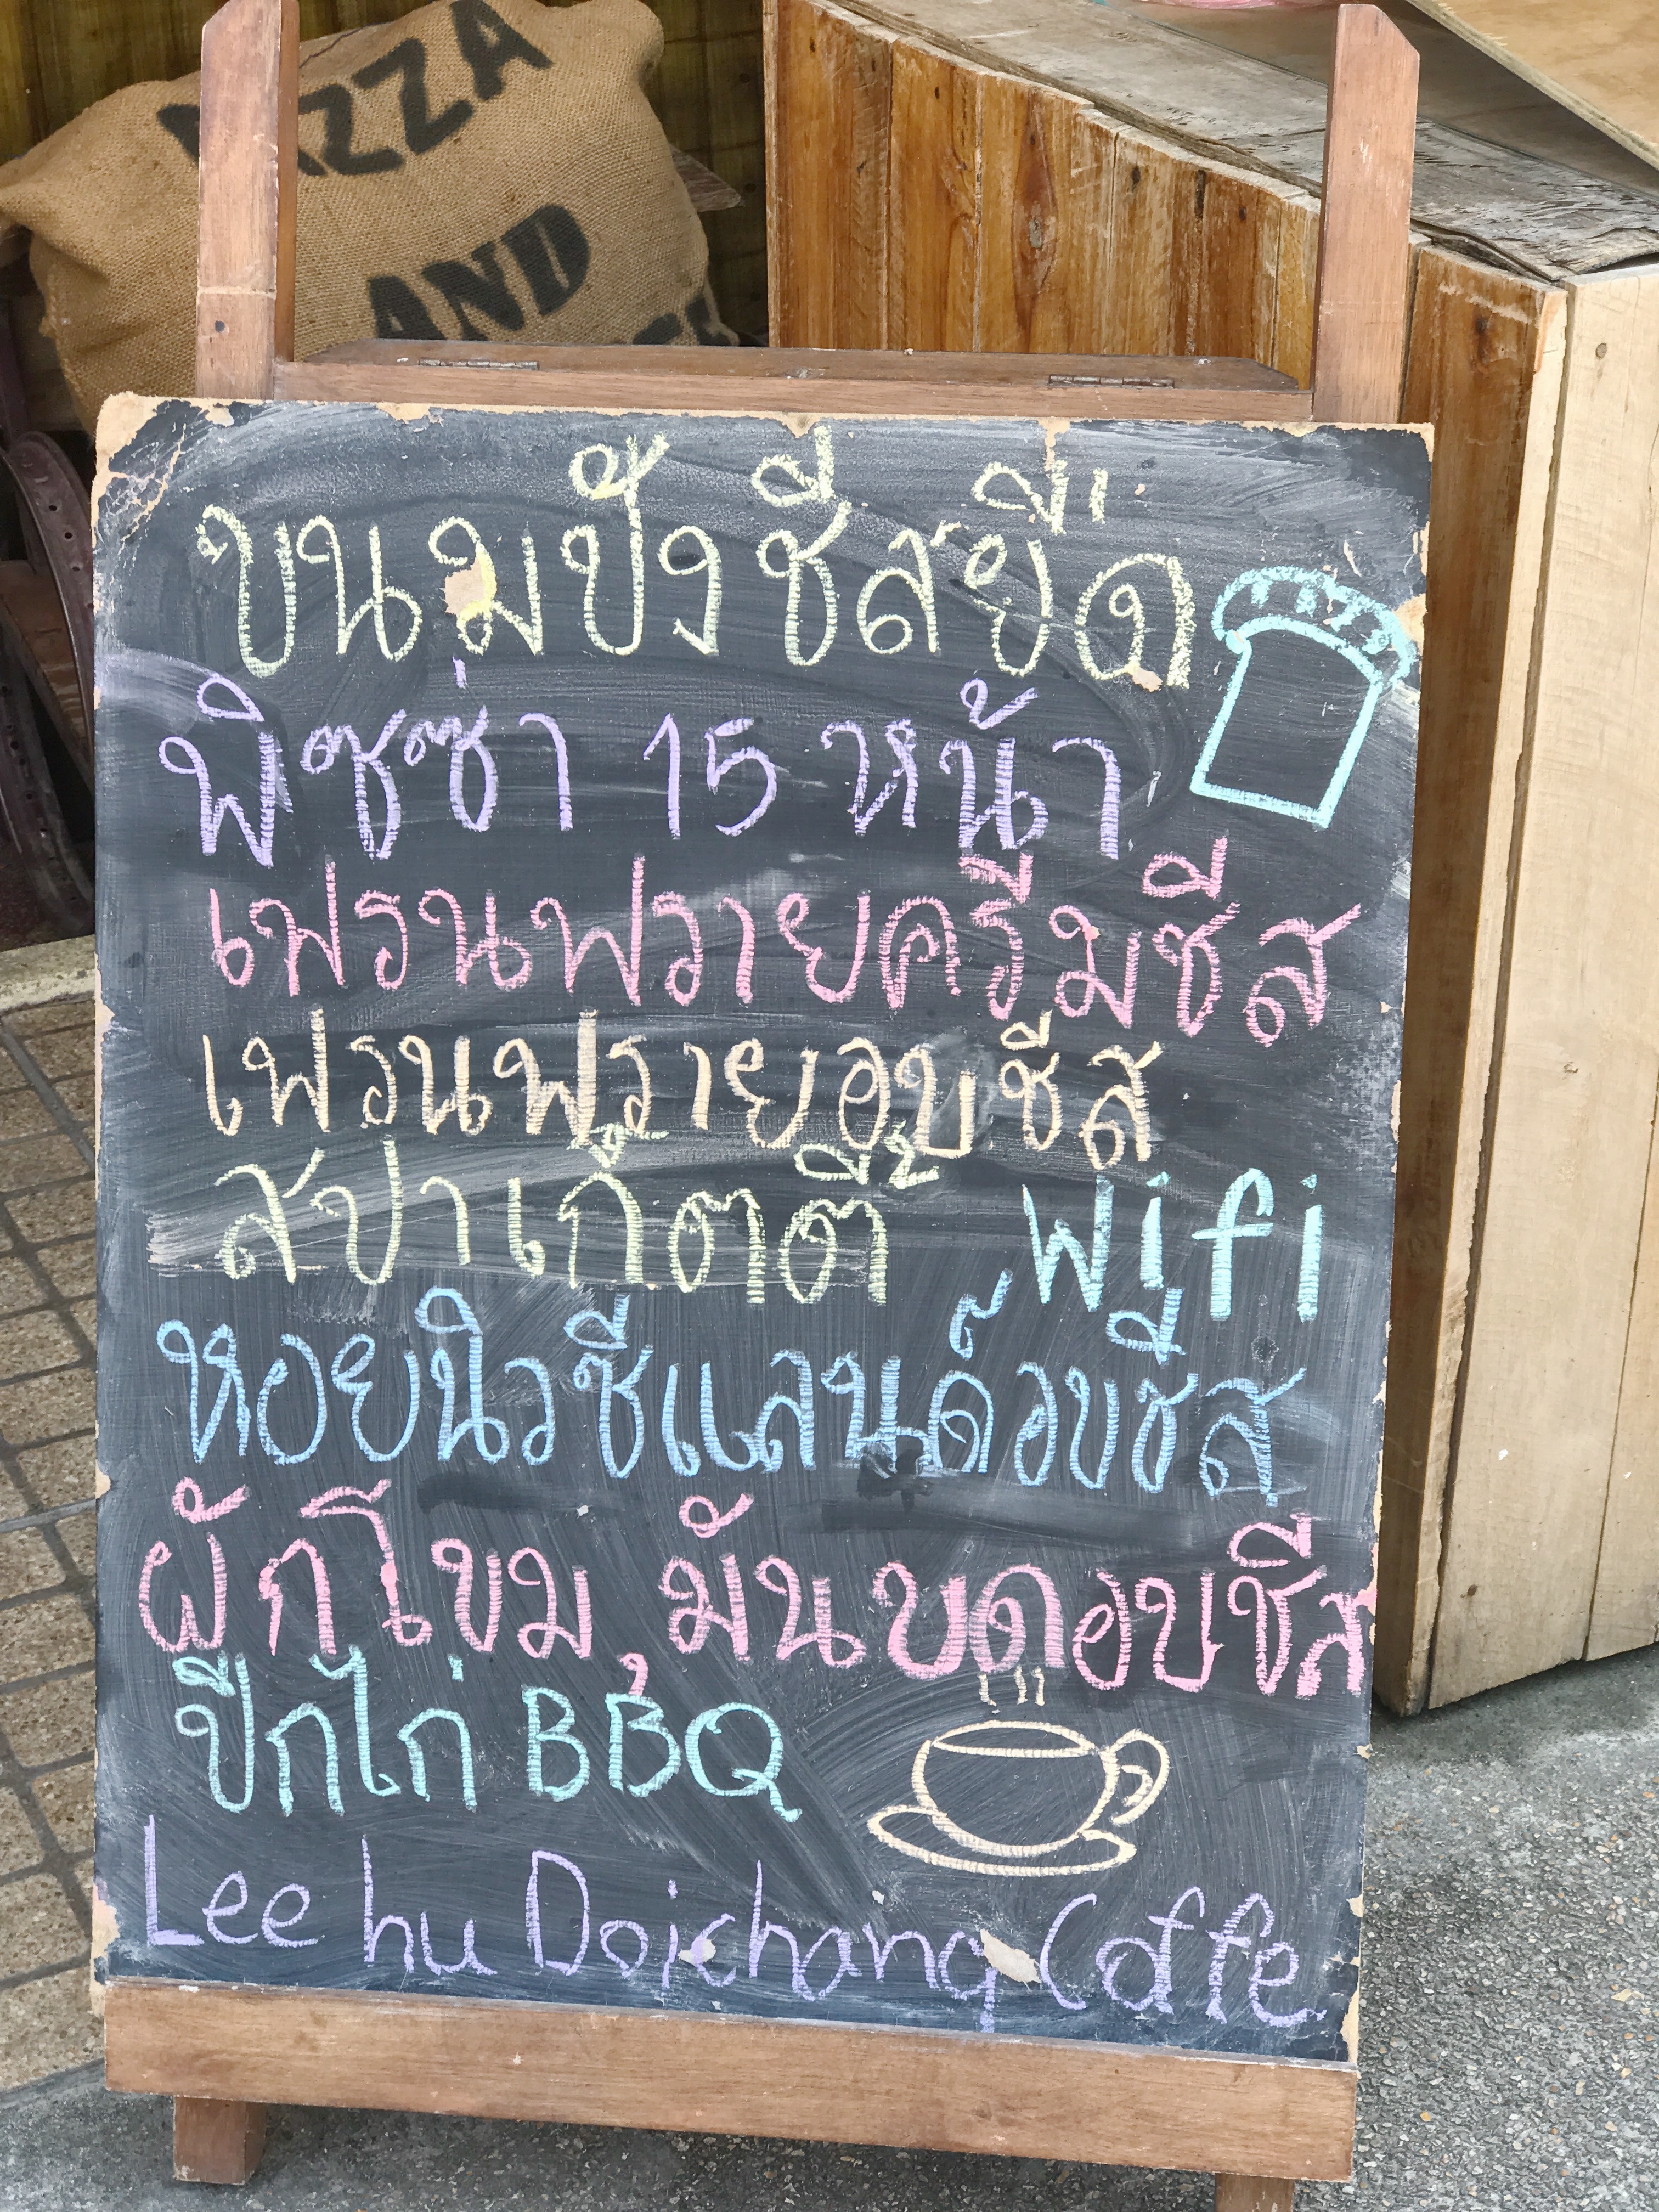 PIZZA
AND
ขนมปังชีสยืด
พิซซ่า 15 หน้า
เฟรนฟรายครีมชีส
เฟรนฟรายอบชีส
สปาเก็ตตี้ wifi
หอยนิวซีแลนด์อบชีส
ผักโขม, มันบดอบชีส
ปีกไก่ BBQ
Lee hu Doichang Caffe